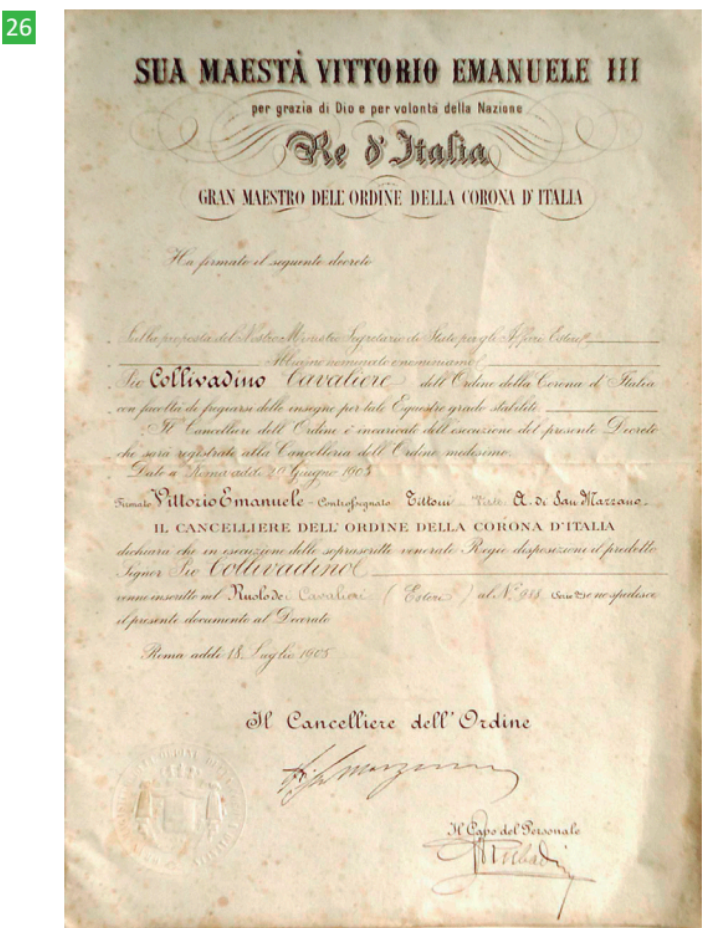 26
SUA MAESTÀ VITTORIO EMANUELE III
per grazia di Dio e per volontà della Nazione
Re d'Italia
GRAN MAESTRO DELL'ORDINE DELLA CORONA D'ITALIA
Ha firmato il seguente decreto
Sulla proposta del Nostro Ministro Segretario di Stato per gli Affari Esteri
Abbiamo nominato e nominiamo
Pio Collivadino Cavaliere dell'Ordine della Corona d'Italia
con facoltà di fregiarsi delle insegne per tale Equestre grado stabilite.
Il Cancelliere dell'Ordine è incaricato dell'esecuzione del presente Decreto
che sarà registrato alla Cancelleria dell'Ordine medesimo.
Dato a Roma addì Giugno 1905
Firmato Vittorio Emanuele - Controssegnato Tittoni - Visto A. di San Marzano.
IL CANCELLIERE DELL'ORDINE DELLA CORONA D'ITALIA
dichiara che in esecuzione delle soprascritte venerate Regie disposizioni il predetto
Signor Pio Collivadino
venne inscritto nel Ruolo dei Cavalieri (Esteri) al N.° 988 e ne spedisce
il presente documento al Decorato
Roma addì 18 Luglio 1905
Il Cancelliere dell'Ordine
Il Capo del Personale